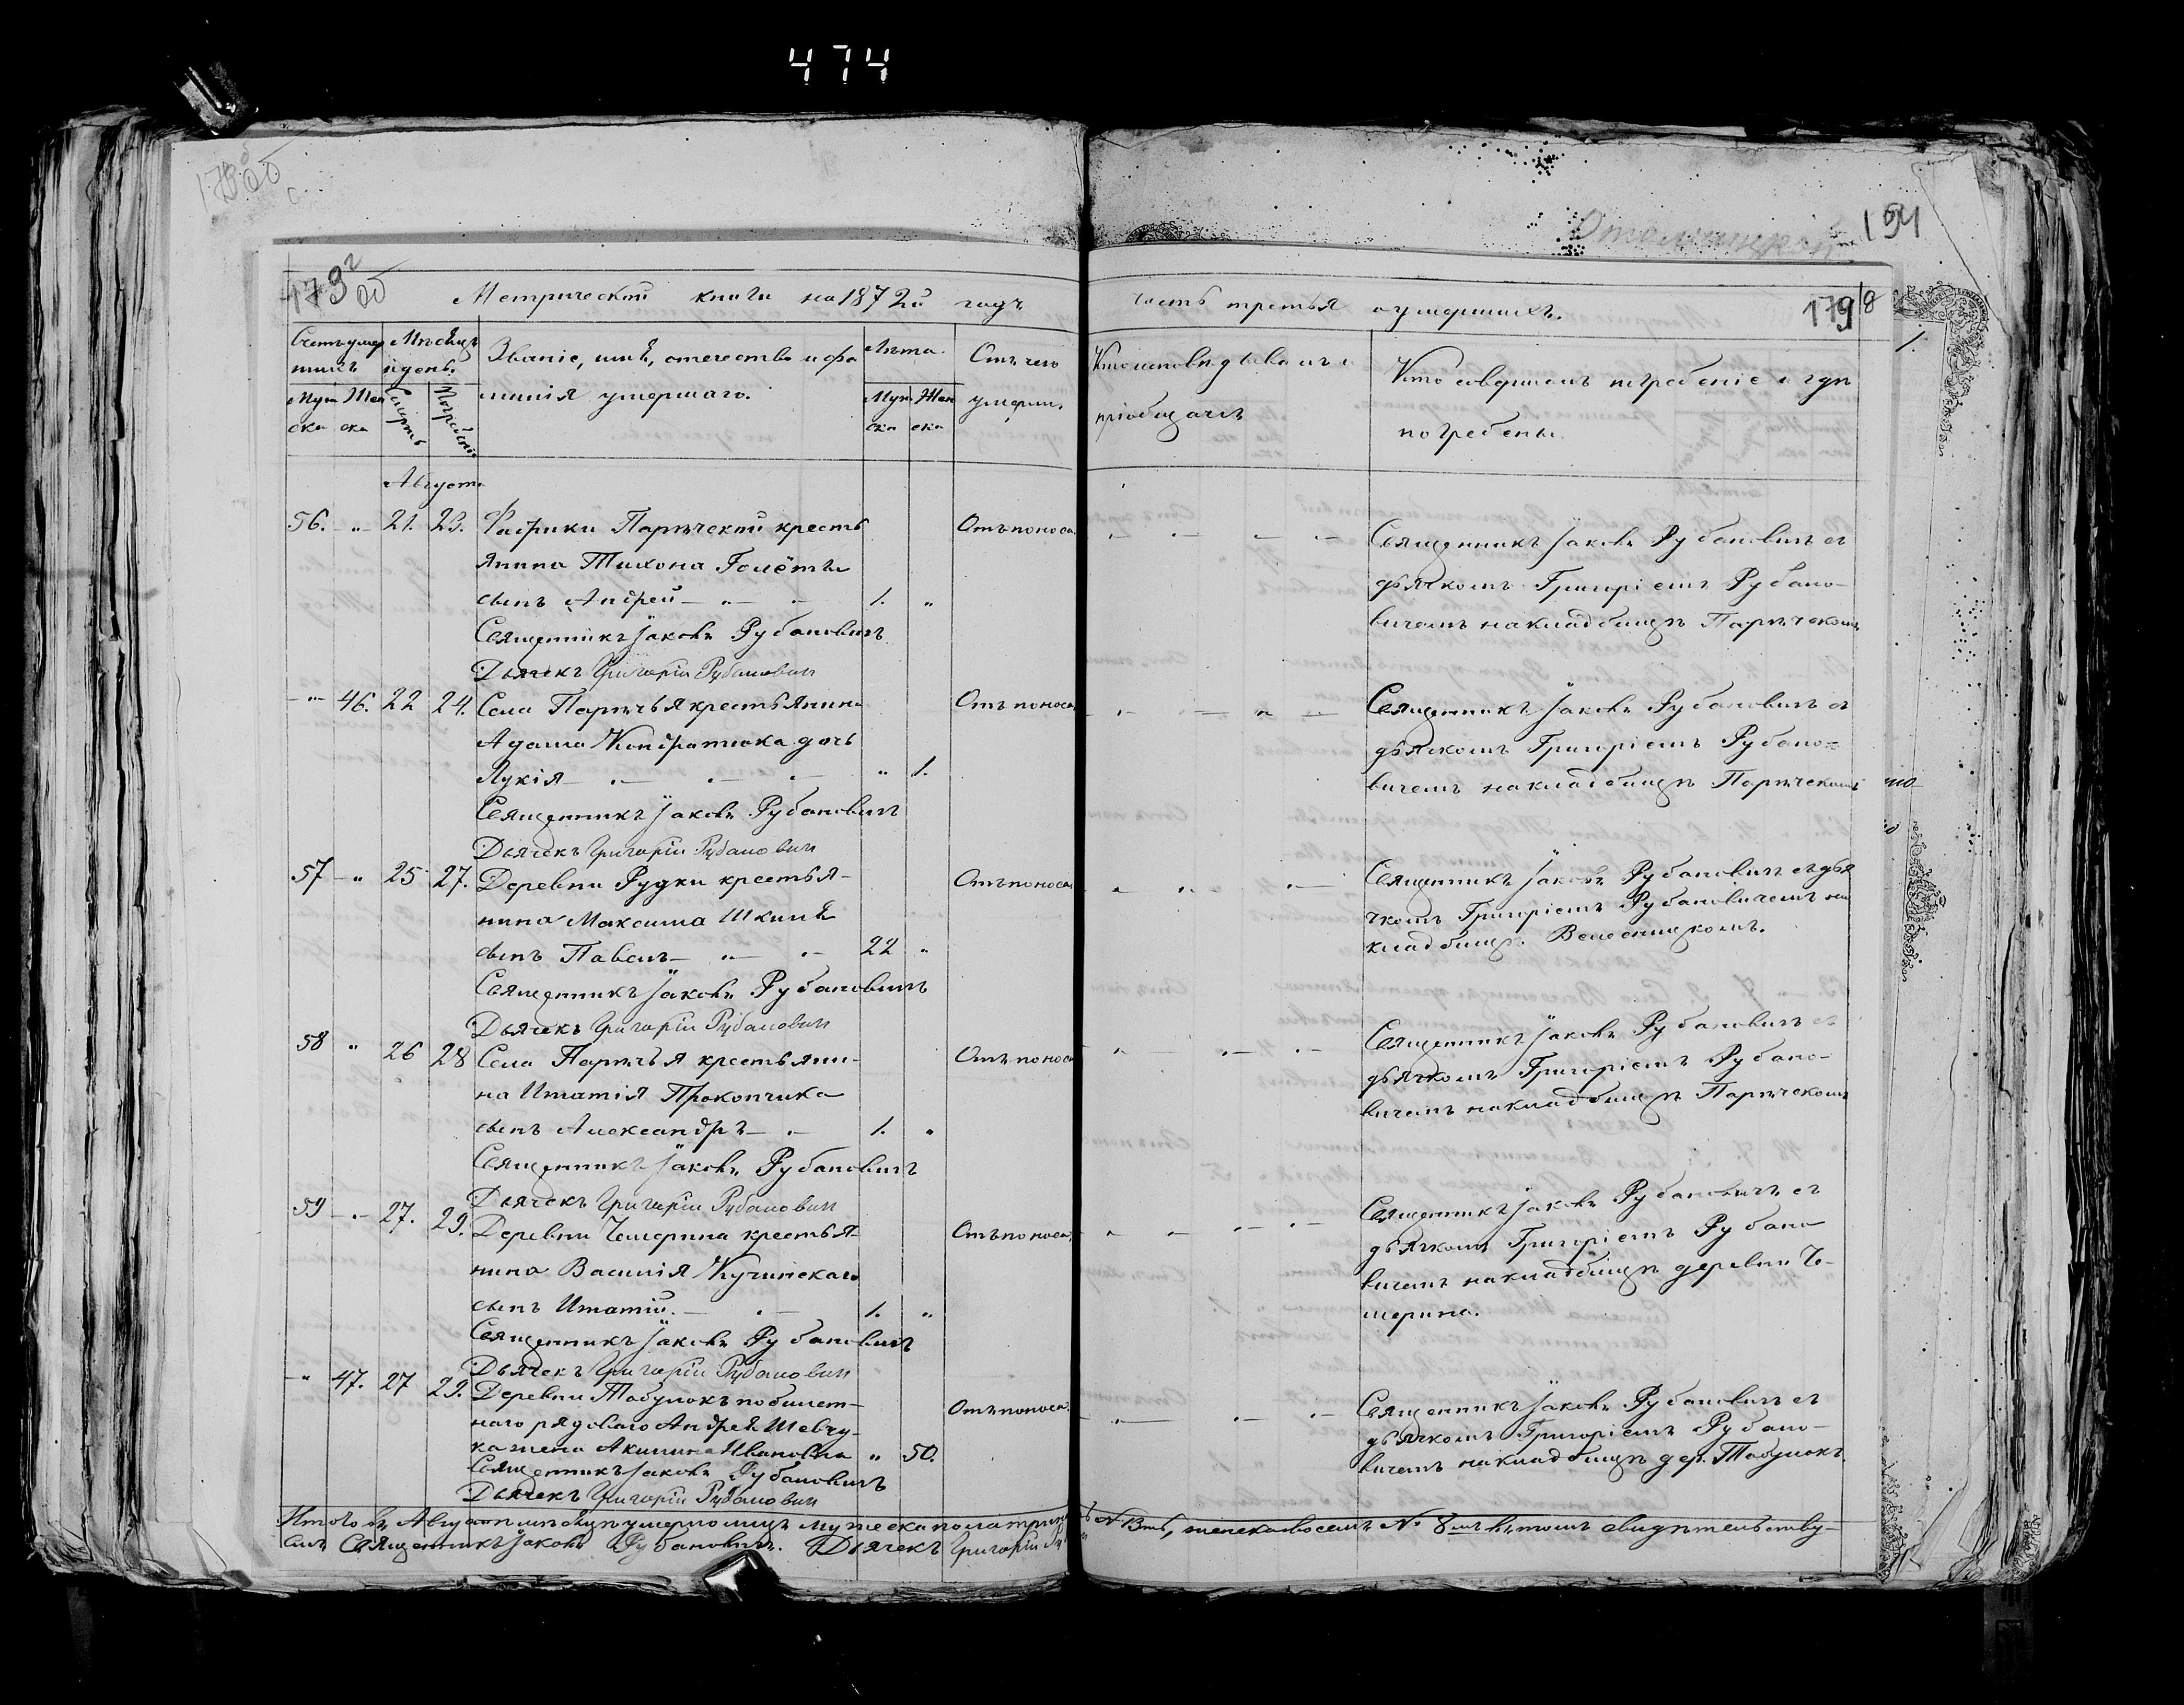 474
194
173 об
Метрической книги на 1872й годъ
часть третья о умершихъ.
179
Счетъ умершихъ
Мѣсяцъ и день.
Званіе, имя, отечество и фамилія умершаго.
Лѣта.
Отъ чего умеръ.
Кто исповѣдывалъ и пріобщалъ
Кто совершалъ погребеніе и гдѣ погребены.
Муж Жен
Смерть
Погребенія
Муж Жен
ска ска
ска ска
Августъ
56. " 21. 23. Фабрики Парѣчской кресть
Отъ поноса
янина Тихона
сынъ Андрей 1. "
Священникъ Іаковъ Рубановичъ
Дьячекъ Григорій Рубанович
Священникъ Іаковъ Рубановичъ съ
дьячкомъ Григоріемъ Рубано-
вичемъ на кладбищѣ Парѣчскомъ
" 46. 22 24. Села Парѣчья крестьянина
Отъ поноса
Адама Кондратюка дочь
Лукія " 1.
Священникъ Іаковъ Рубановичъ
Дьячекъ Григорій Рубанович
Священникъ Іаковъ Рубановичъ съ
дьячкомъ Григоріемъ Рубано-
вичемъ на кладбищѣ Парѣчскомъ
57 " 25 27. Деревни Рудки крестья-
Отъ поноса
нина Максима
сынъ Павелъ 22 "
Священникъ Іаковъ Рубановичъ
Дьячекъ Григорій Рубанович
Священникъ Іаковъ Рубановичъ съ дья
чкомъ Григоріемъ Рубановичемъ на
кладбищѣ
58 " 26 28 Села Парѣчья крестьяни-
Отъ поноса
на Игнатія Прокопчика
сынъ Александръ 1. "
Священникъ Іаковъ Рубановичъ
Дьячекъ Григорій Рубанович
Священникъ Іаковъ Рубановичъ съ
дьячкомъ Григоріемъ Рубано-
вичемъ на кладбищѣ Парѣчскомъ
59 " 27. 29. Деревни Чемерина крестья-
Отъ поноса.
нина Василія Кучинскаго
сынъ Игнатій. 1. "
Священникъ Іаковъ Рубановичъ
Дьячекъ Григорій Рубанович
Священникъ Іаковъ Рубановичъ съ
дьячкомъ Григоріемъ Рубано
вичемъ на кладбищѣ деревни Че-
мерина.
" 47. 27 29. Деревни Табулокъ побилет-
Отъ поноса.
наго рядоваго Андрея Шевчу-
ка жена Акилина Ивановна " 50.
Священникъ Іаковъ Рубановичъ
Дьячекъ Григорій Рубанович
Священникъ Іаковъ Рубановичъ съ
дьячкомъ Григоріемъ Рубано-
вичемъ на кладбищѣ дер. Табулокъ.
Итого въ Августѣ мѣсяцѣ умерло лицъ мужеска пола женска восемь № 8 въ томъ свидѣтельству-
емъ Священникъ Іаковъ Рубановичъ. Дьячекъ Григорій